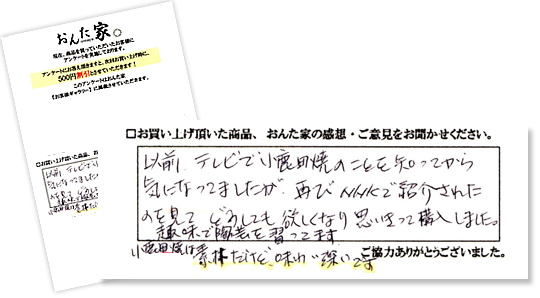 おんた家
現在、商品を買っていただいたお客様に
アンケートを実施しております。
アンケートにお答え頂きますと、次回お買い上げ時に、
500円割引とさせていただきます!
このアンケートはおんた家
【お客様ギャラリー】に掲載させていただきます。
□お買い上げ頂いた商品、おんた
以前、テレビで小
気になってましたが
のを見て どうして
趣味で陶芸
小鹿田焼は素朴だけ
□お買い上げ頂いた商品、おんた家の感想・ご意見をお聞かせください。
以前、テレビで小鹿田焼のことを知ってから
気になってましたが、再びNHKで紹介された
のを見て どうしても 欲しくなり 思い切って購入しました。
趣味で陶芸を習ってます
ご協力ありがとうございました。
小鹿田焼は素朴だけど、味わい深いです